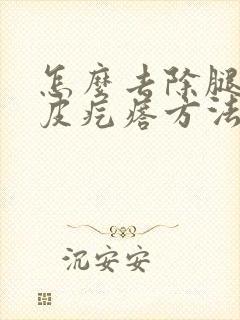 怎麽去除腿
皮疙瘩方法
沉安安